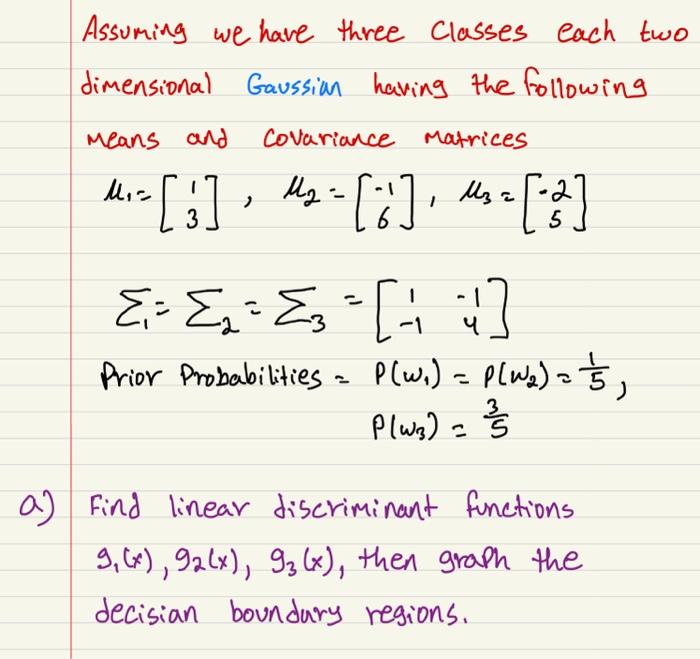 Assuming we have three Classes each two
dimensional Gaussian having the following
Means and Covariance Matrices
μ₁ = [1 3] , μ₂ = [-1 6] , μ₃ = [-2 5]
Σ₁ = Σ₂ = Σ₃ = [1 -1 -1 4]
Prior Probabilities = P(w₁) = P(w₂) = 1/5 ,
P(w₃) = 3/5
a) Find linear discriminant functions
g₁(x), g₂(x), g₃(x), then graph the
decisian boundary regions.